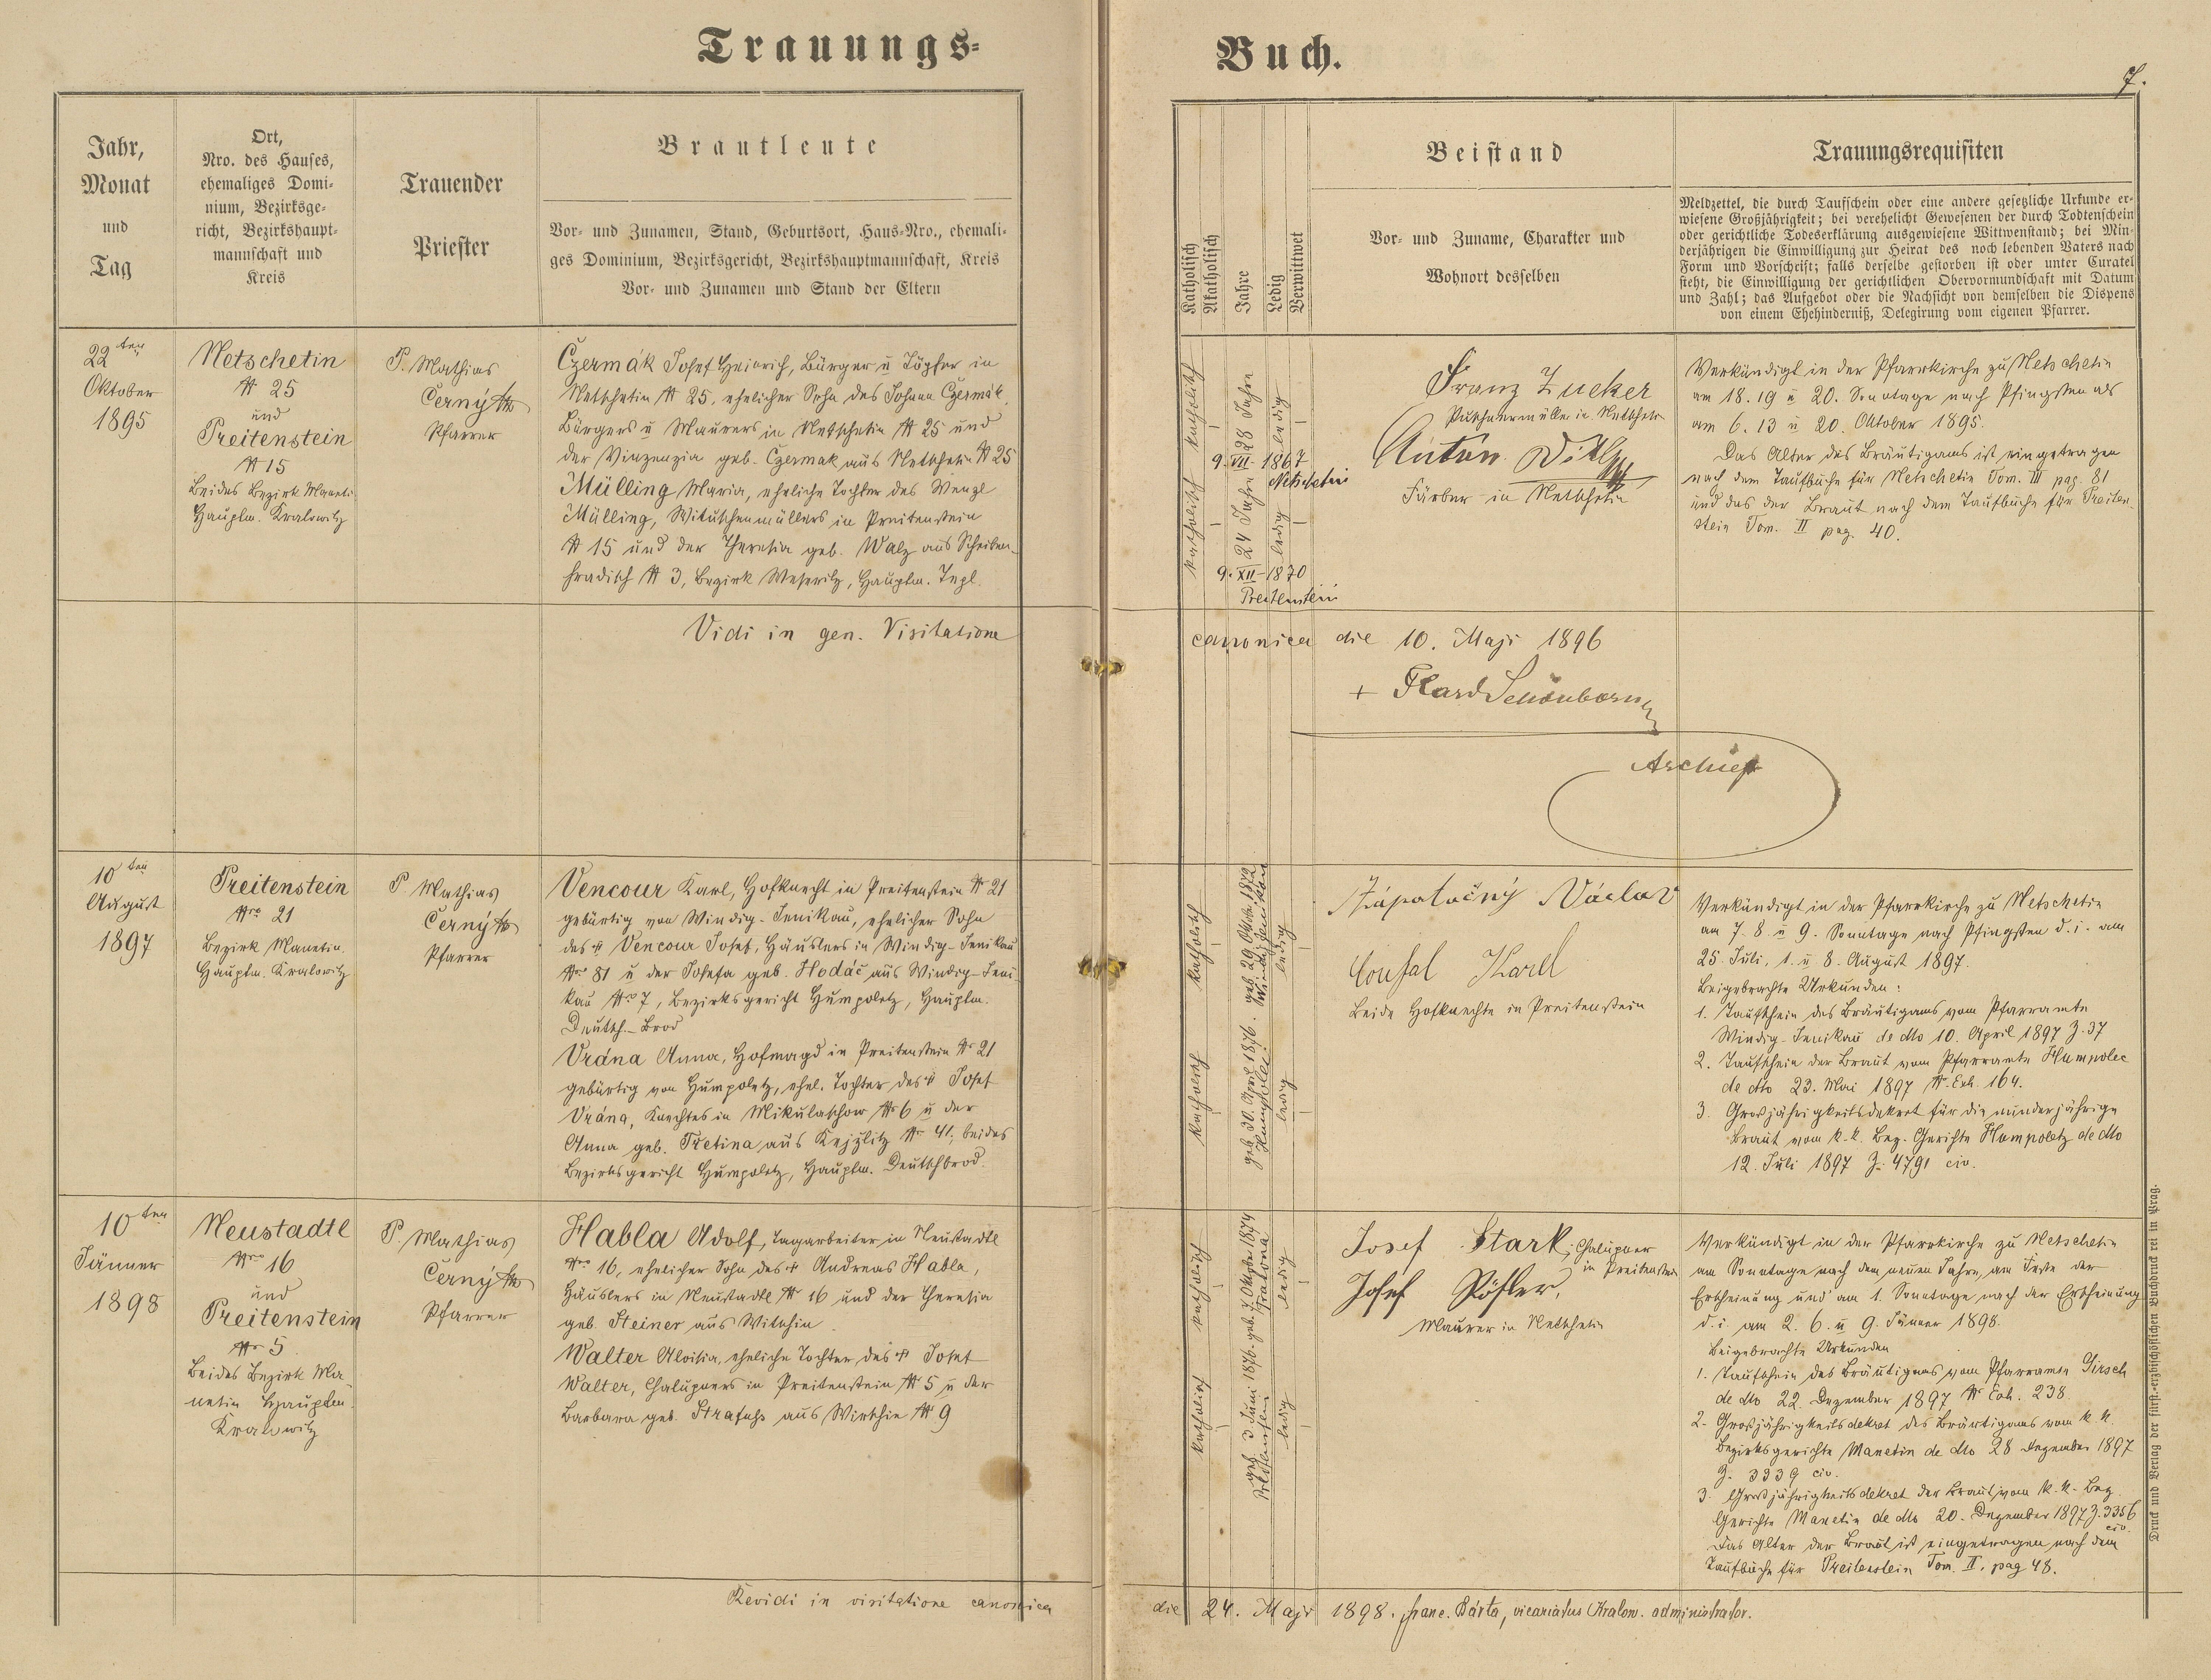 Trauungs-
Buch.
7.
Jahr,
Monat
und
Tag
Ort,
Nro. des Hauses,
ehemaliges Domi-
nium, Bezirksge-
richt, Bezirkshaupt-
mannschaft und
Kreis
Trauender
Priester
Brautleute
Vor- und Zunamen, Stand, Geburtsort, Haus-Nro., ehemali-
ges Dominium, Bezirksgericht, Bezirkshauptmannschaft, Kreis
Vor- und Zunamen und Stand der Eltern
Katholisch
Akatholisch
Jahre
Ledig
Verwittwet
Beistand
Vor- und Zuname, Charakter und
Wohnort desselben
Trauungsrequisiten
Meldzettel, die durch Taufschein oder eine andere gesetzliche Urkunde er-
wiesene Großjährigkeit; bei verehelicht Gewesenen der durch Todtenschein
oder gerichtliche Todeserklärung ausgewiesene Wittwenstand; bei Min-
derjährigen die Einwilligung zur Heirat des noch lebenden Vaters nach
Form und Vorschrift; falls derselbe gestorben ist oder unter Curatel
steht, die Einwilligung der gerichtlichen Obervormundschaft mit Datum
und Zahl; das Aufgebot oder die Nachsicht von demselben die Dispens
von einem Ehehinderniß, Delegirung vom eigenen Pfarrer.
22ten
Oktober
1895
Netschetin
N 25
und
Preitenstein
N 15
Beides Bezirk Maneti
Hauptm. Kralowitz
P. Mathias
Černý
Pfarrer
Czermák Josef Heinrich, Bürger u Töpfer in
Netschetin N 25, ehelicher Sohn des Johann Czermák,
Bürgers u Maurers in Netschetin N 25 und
der Vinzenzia geb. Czermak aus Netschetin N 25
Mülling Maria, eheliche Tochter des Wenzl
Mülling, Wituschenmüllers in Preitenstein
N 15 und der Theresia geb. Walz aus Scheiben-
hradisch N 3, Bezirk Weseritz, Hauptm. Tepl.
katholisch
28 Jahre
ledig
9. VII. 1867
Netschetin
katholisch
24 Jahre
ledig
9. XII. 1870
Preitenstein
Franz Zucker
in Netschetin
Anton
Färber in Netschetin
Verkündigt in der Pfarrkirche zu Netschetin
am 18. 19 u 20. Sonntage nach Pfingsten als
am 6. 13 u 20. Oktober 1895.
Das Alter des Bräutigams ist eingetragen
nach dem Taufbuche für Netschetin Tom. III pag. 81
und das der Braut nach dem Taufbuche für Preiten-
stein Tom. II pag. 40.
Vidi in gen. Visitatione
canonica die 10. Maji 1896
+ F Card Schönborn
Archiep
10ten
August
1897
Preitenstein
Nro 21
Bezirk Manetin
Hauptm. Kralowitz
P Mathias
Černý
Pfarrer
Vencour Karl, Hofknecht in Preitenstein N 21
gebürtig von Windig-Jenikau, ehelicher Sohn
des † Vencour Josef, Häuslers in Windig-Jenikau
Nro 81 u der Josefa geb. Hodáč aus Windig-Jeni-
kau Nro 7, Bezirksgericht Humpoletz, Hauptm.
Deutsch-Brod
Vrána Anna, Hofmagd in Preitenstein N 21
gebürtig von Humpoletz, ehel. Tochter des † Josef
Vrána, Knechtes in Mikulaschow N 6 u der
Anna geb. Tretina aus Kejzlitz N 41, beides
Bezirksgericht Humpoletz, Hauptm. Deutschbrod.
katholisch
geb. 29. Oktobr. 1872
Windig Jenikau
ledig
katholisch
geb. 30. April 1876.
Humpolec.
ledig
Zápotočný Václav
Coufal Karel
Beide Hofknechte in Preitenstein
Verkündigt in der Pfarrkirche zu Netschetin
am 7. 8. u 9. Sonntage nach Pfingsten d. i. am
25. Juli, 1. u 8. August 1897.
Beigebrachte Urkunden:
1. Taufschein des Bräutigams vom Pfarramte
Windig-Jenikau de dto 10. April 1897 Z. 37
2. Taufschein der Braut vom Pfarramte Humpolec
de dto 23. Mai 1897 N. Exh. 164.
3. Großjährigkeitsdekret für die minderjährige
Braut vom k. k. Bez. Gerichte Humpoletz de dto
12. Juli 1897 Z. 4791 civ.
10ten
Jänner
1898
Neustadtl
Nro 16
und
Preitenstein
Nr 5
Beides Bezirk Ma-
netin Hauptm.
Kralowitz
P. Mathias
Černý
Pfarrer
Habla Adolf, Tagarbeiter in Neustadtl
Nro 16, ehelicher Sohn des † Andreas Habla,
Häuslers in Neustadtl N 16 und der Theresia
geb. Steiner aus Witschin
Walter Aloisia, eheliche Tochter des † Josef
Walter, Chalupners in Preitenstein N 5 u der
Barbara geb. aus N 9
katholisch
geb. 7. Oktober 1874
ledig
katholisch
geb. 3. Juni 1876.
Preitenstein
ledig
Josef Stark, Chalupner
in Preitenstein
Josef Rößler,
Maurer in Netschetin
Verkündigt in der Pfarrkirche zu Netschetin
am Sonntage nach dem neuen Jahre, am Feste der
Erscheinung und am 1. Sonntage nach der Erscheinung
d. i. am 2. 6. u 9. Jänner 1898.
Beigebrachte Urkunden
1. Taufschein des Bräutigams vom Pfarramte Girsch
de dto 22. Dezember 1897 N Exh. 238.
2. Großjährigkeitsdekret des Bräutigams vom k. k.
Bezirksgerichte Manetin de dto 28 Dezember 1897
Z. 3339 civ.
3. Großjährigkeitsdekret der Braut vom k. k. Bez.
Gerichte Manetin de dto 20. Dezember 1897 Z. 3356
civ.
Das Alter der Braut ist eingetragen nach dem
Taufbuche für Preitenstein Tom. II. pag 48.
Revidi in visitatione canonica
die 24. Maji 1898. Franc. Bárta, vicariatus Kralov. administrator.
Druck und Verlag der fürst.-erzbischöflichen Buchdruckerei in Prag.